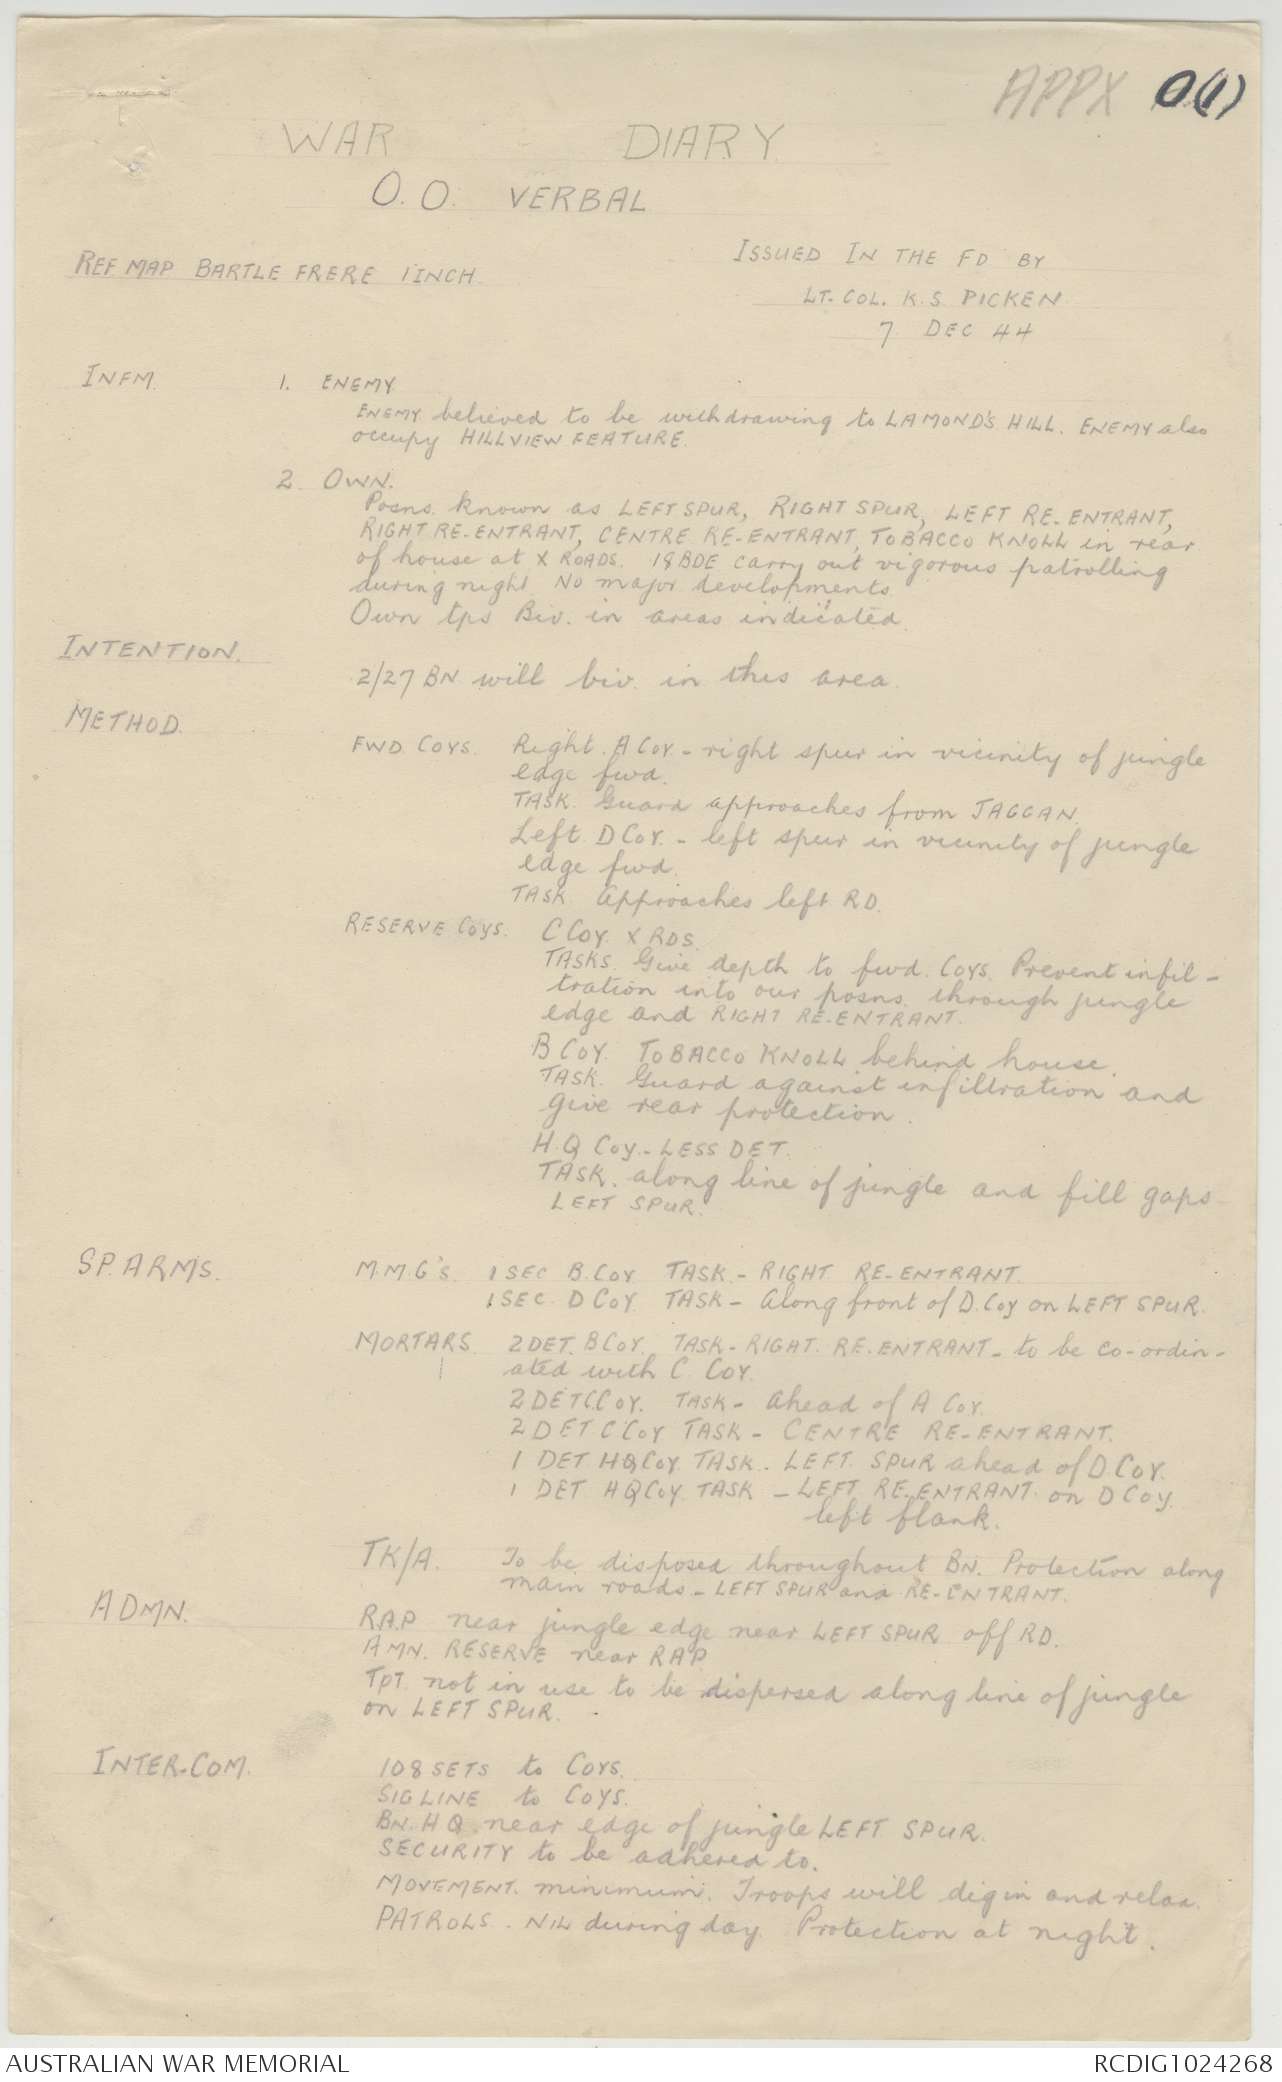 APPX O(1)
WAR DIARY
O.O. VERBAL
REF MAP BARTLE FRERE 1 INCH.
ISSUED IN THE FD BY
LT-COL. K.S. PICKEN
7 DEC 44
INFM. 1. ENEMY
ENEMY believed to be withdrawing to LAMOND'S HILL. ENEMY also
occupy HILLVIEW FEATURE.
2 OWN.
Posns. known as LEFT SPUR, RIGHT SPUR, LEFT RE-ENTRANT,
RIGHT RE-ENTRANT, CENTRE RE-ENTRANT, TOBACCO KNOLL in rear
of house at X ROADS. 18 BDE carry out vigorous patrolling
during night. No major developments.
Own tps Biv. in areas indicated.
INTENTION.
2/27 BN will biv. in this area.
METHOD.
FWD COYS. Right. A Coy - right spur in vicinity of jungle
edge fwd.
TASK. Guard approaches from JAGGAN.
Left D Coy. - left spur in vicinity of jungle
edge fwd.
TASK Approaches left RD.
RESERVE COYS. C Coy X RDS.
TASKS. Give depth to fwd. Coys. Prevent infil-
tration into our posns. through jungle
edge and RIGHT RE-ENTRANT.
B Coy. TOBACCO KNOLL behind house.
TASK. Guard against infiltration and
give rear protection.
H.Q Coy. - LESS DET.
TASK. along line of jungle and fill gaps
LEFT SPUR.
SP. ARMS. M.M.G's. 1 SEC B. Coy TASK - RIGHT RE-ENTRANT.
1 SEC. D Coy. TASK - Along front of D. Coy on LEFT SPUR.
MORTARS 2 DET. B Coy. TASK - RIGHT. RE-ENTRANT - to be co-ordin-
ated with C Coy.
2 DET C Coy. TASK - ahead of A Coy.
2 DET C Coy TASK - CENTRE RE-ENTRANT.
1 DET HQ Coy. TASK. LEFT SPUR ahead of D. Coy.
1 DET HQ Coy TASK - LEFT RE-ENTRANT on D Coy.
left flank.
TK/A. To be disposed throughout BN. Protection along
main roads - LEFT SPUR and RE-ENTRANT.
ADMN. R.A.P near jungle edge near LEFT SPUR off RD.
AMN. RESERVE near RAP
TPT. not in use to be dispersed along line of jungle
on LEFT SPUR.
INTER-COM. 108 SETS to Coys.
SIG LINE to Coys.
BN. H Q near edge of jungle LEFT SPUR.
SECURITY to be adhered to.
MOVEMENT. minimum. Troops will dig in and relax.
PATROLS. NIL during day. Protection at night.
AUSTRALIAN WAR MEMORIAL RCDIG1024268